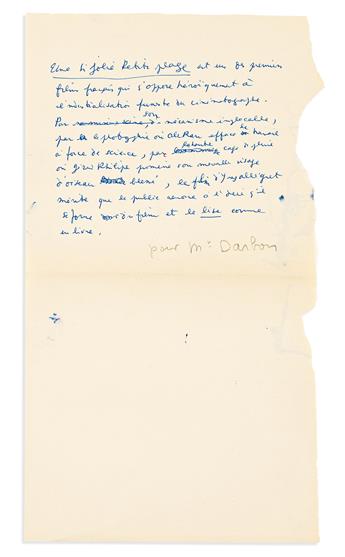 Une si jolie Petite plage est un des premiers
films français qui s'oppose héroïquement à
l'industrialisation funeste du cinématographe.
Par son mécanisme implacable,
par la photographie où Alekan efface le travail
à force de science, par la cape de pluie
où Gérard Philipe promène son nouveau visage
d'oiseau blessé, le film d'Yves Allégret
mérite que le public renonce à l'idée qu'il
se forme du film et le lise comme
un livre.
pour Mr Darbon